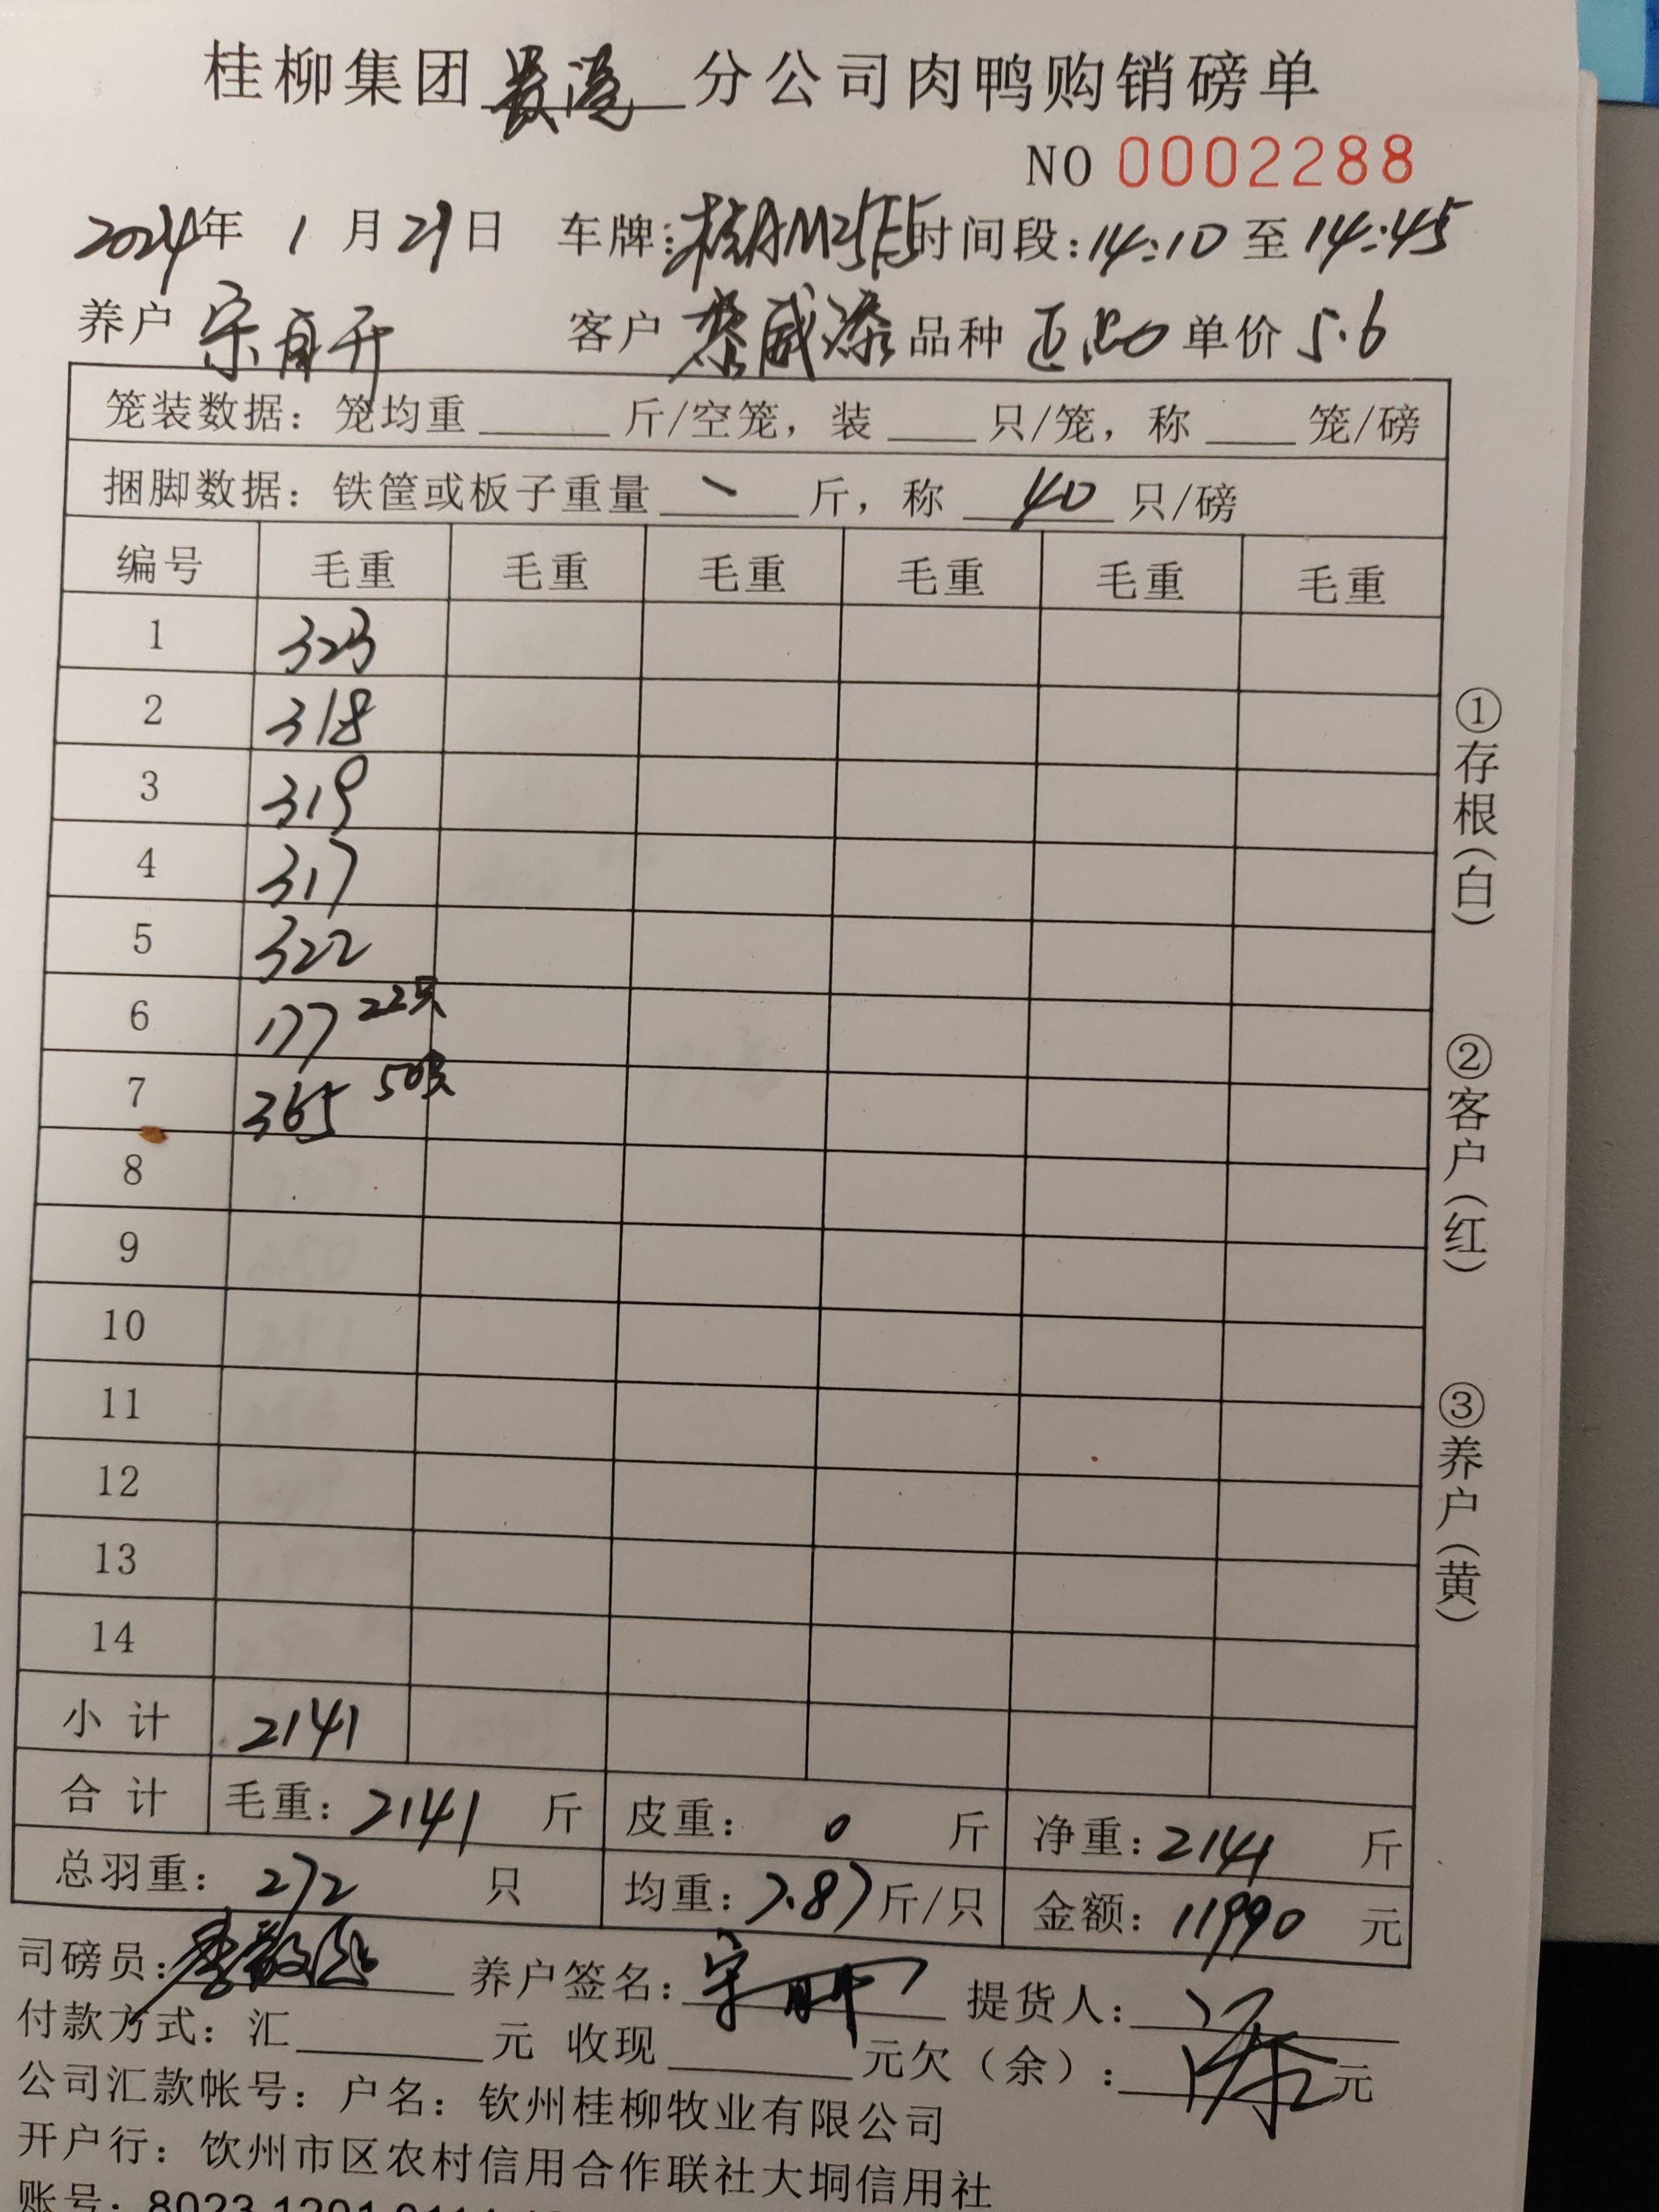 桂柳集团 分公司肉鸭购销磅单
NO 0002288
2024年 1 月 21 日 车牌:桂AM25F5 时间段:14:10 至 14:45
养户 宋自开 客户 黎威添 品种 单价 5.6
笼装数据:笼均重 斤/空笼,装 只/笼,称 笼/磅
捆脚数据:铁筐或板子重量 斤,称 40 只/磅
编号 毛重 毛重 毛重 毛重 毛重 毛重
1 323
2 318
3 319
4 317
5 322
6 177 22只
7 365 50只
8
9
10
11
12
13
14
小计 2141
合计 毛重:2141 斤 皮重:0 斤 净重:2141 斤
总羽重:272 只 均重:7.87 斤/只 金额:11990 元
①存根(白) ②客户(红) ③养户(黄)
司磅员: 养户签名: 提货人:
付款方式:汇 元 收现 元欠(余): 元
公司汇款帐号:户名:钦州桂柳牧业有限公司
开户行:钦州市区农村信用合作联社大垌信用社
账号:8023 1201 0114